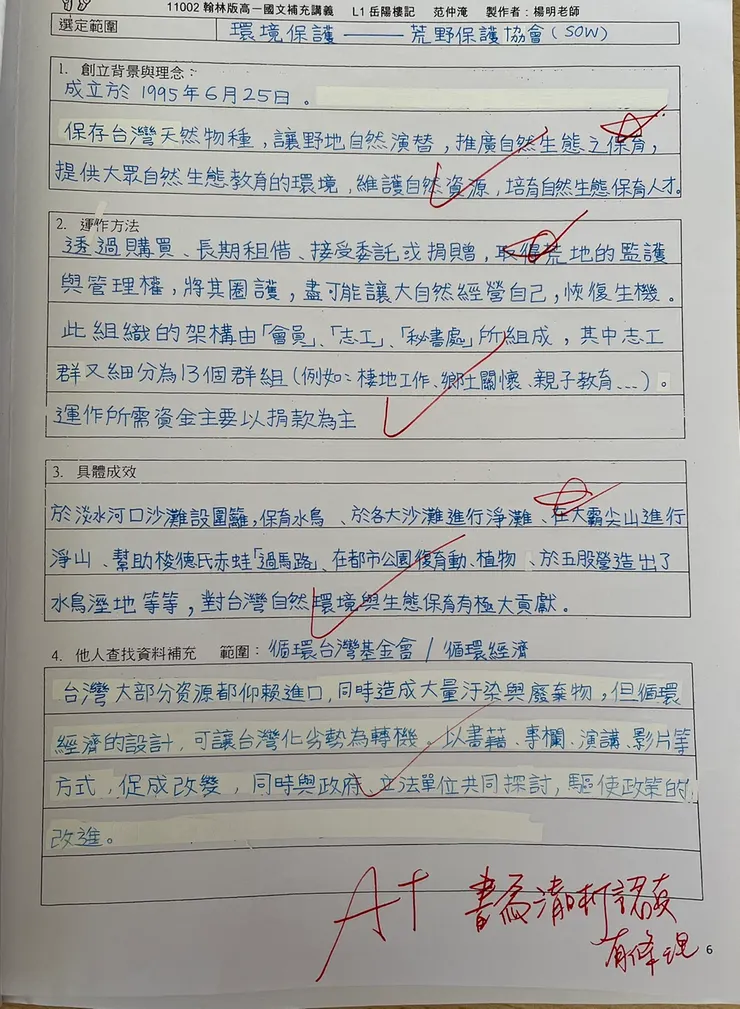 11002 翰林版高一國文補充講義 L1 岳陽樓記 范仲淹 製作者：楊明老師
選定範圍 環境保護——荒野保護協會(SOW)
1. 創立背景與理念：
成立於1995年6月25日。
保存台灣天然物種，讓野地自然演替，推廣自然生態之保育，
提供大眾自然生態教育的環境，維護自然資源，培育自然生態保育人才。
2. 運作方法
透過購買、長期租借、接受委託或捐贈，取得荒地的監護
與管理權，將其圈護，盡可能讓大自然經營自己，恢復生機。
此組織的架構由「會員」、「志工」、「秘書處」所組成，其中志工
群又細分為13個群組(例如：棲地工作、鄉土關懷、親子教育...)。
運作所需資金主要以捐款為主
3. 具體成效
於淡水河口沙灘設圍籬，保育水鳥、於各大沙灘進行淨灘、在大霸尖山進行
淨山、幫助梭德氏赤蛙「過馬路」、在都市公園復育動、植物、於五股營造出了
水鳥溼地等等，對台灣自然環境與生態保育有極大貢獻。
4. 他人查找資料補充 範圍：循環台灣基金會/循環經濟
台灣大部分資源都仰賴進口，同時造成大量汙染與廢棄物，但循環
經濟的設計，可讓台灣化劣勢為轉機。以書籍、專欄、演講、影片等
方式，促成改變，同時與政府、立法單位共同探討，驅使政策的
改進。
A+ 書寫清晰認真
有條理
6